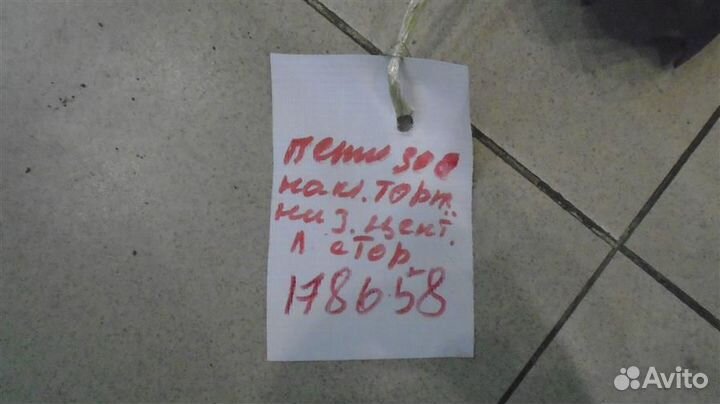 пежо 308
накл. торп.
низ. цент.
л стор
178658
Avito